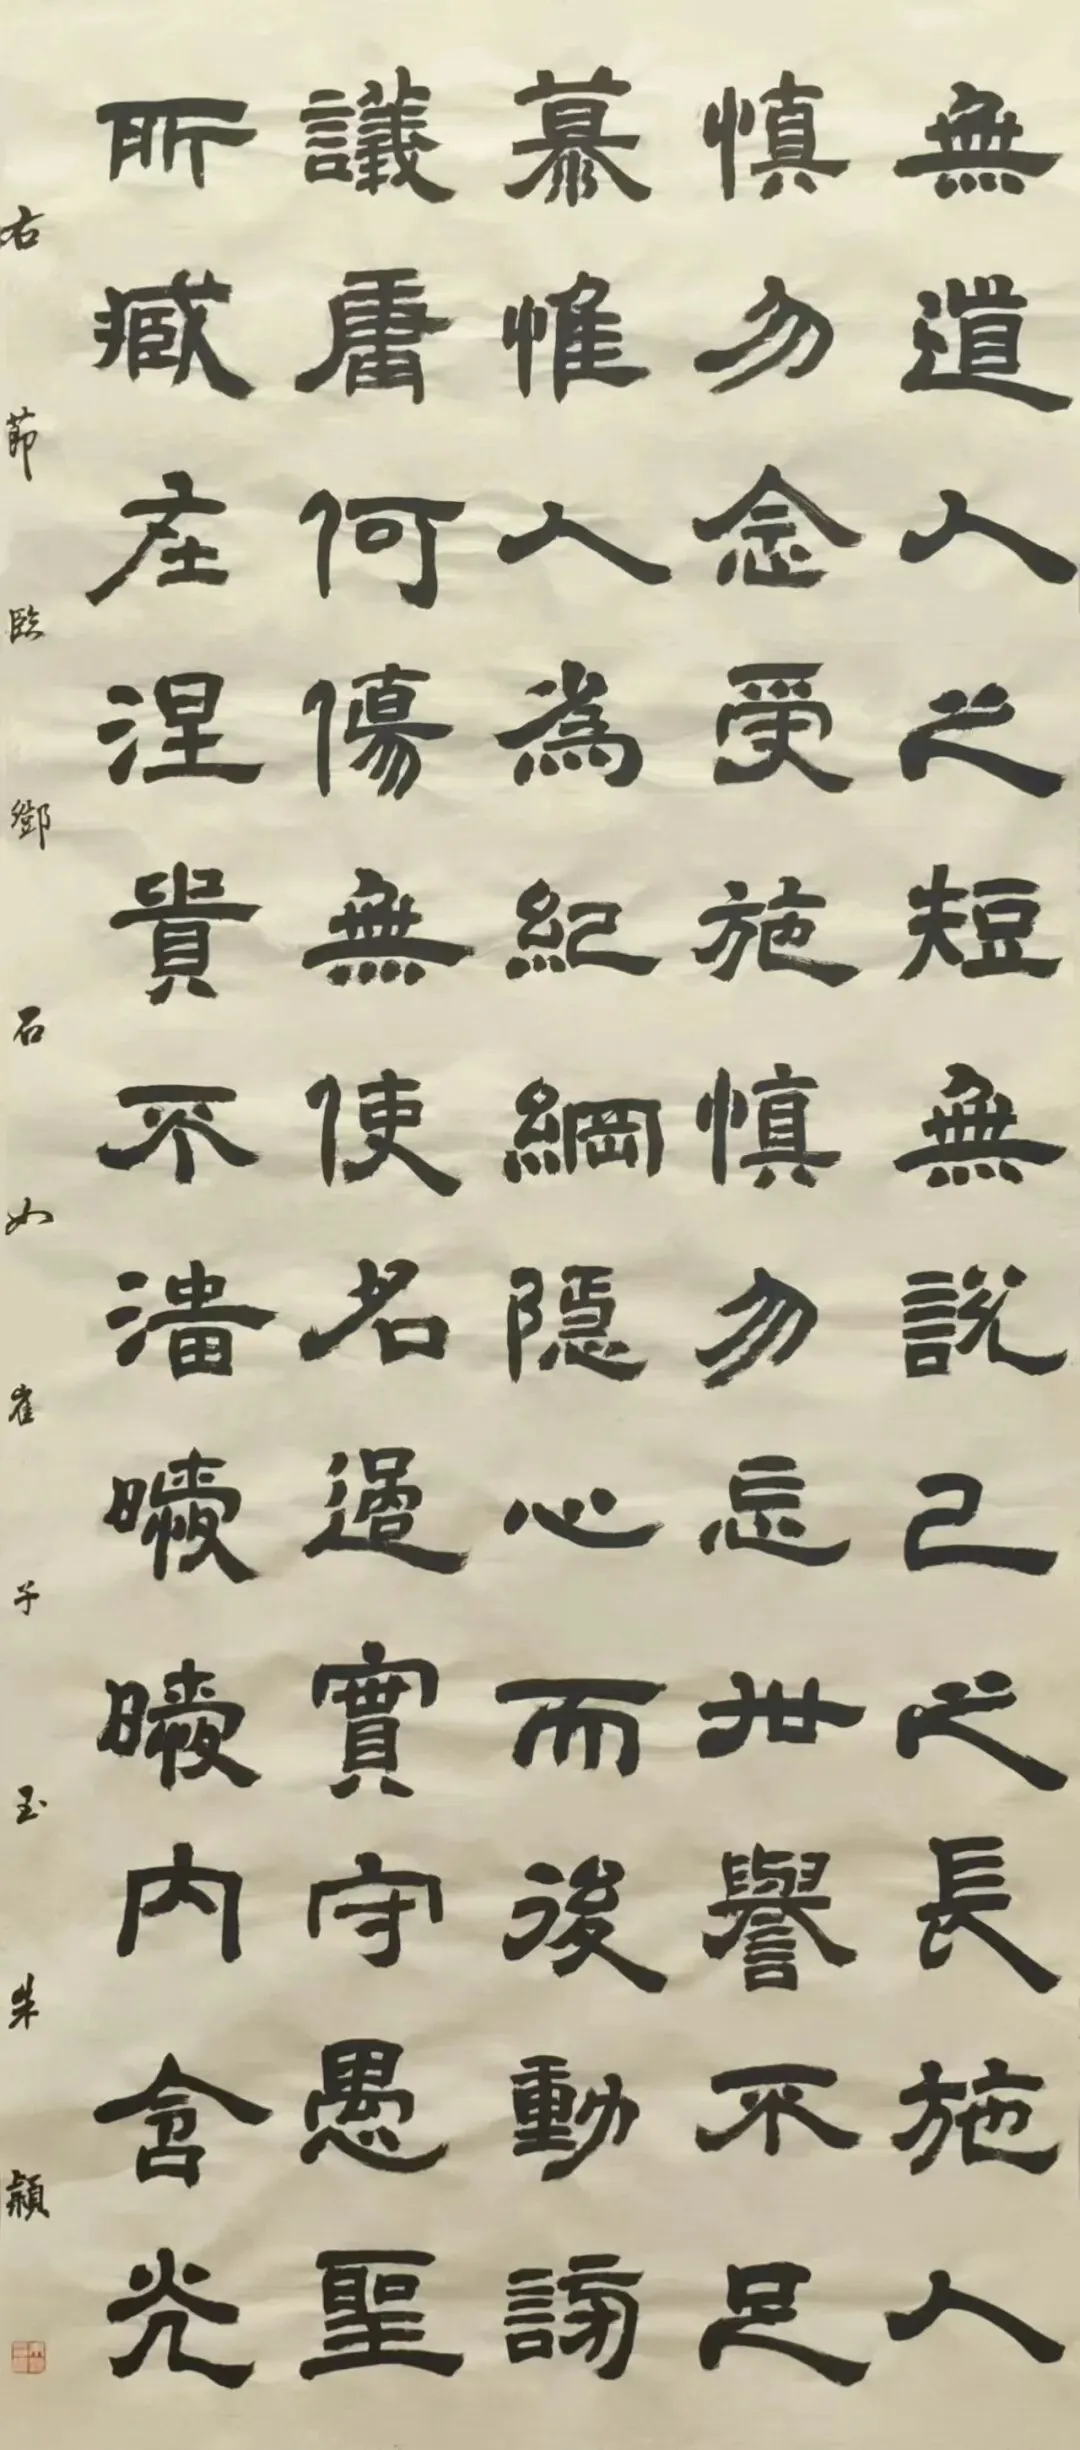 無道人之短無說己之長施人
慎勿念受施慎勿忘世譽不足
慕惟人為紀綱隱心而後動謗
議庸何傷無使名過實守愚聖
所臧在涅貴不淄曖曖內含光
右節臨鄧石如崔子玉朱穎